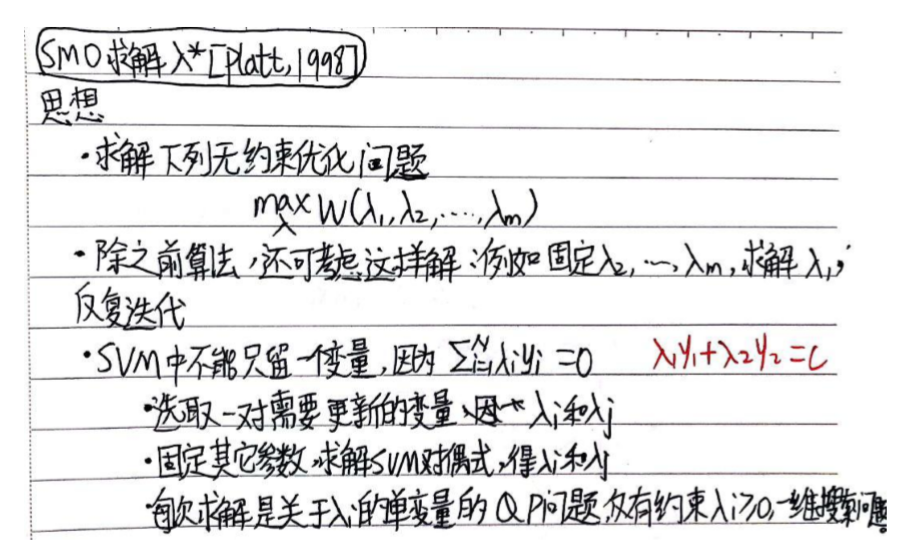 SMO求解λ* [Platt, 1998]
思想
·求解下列无约束优化问题
max W(λ₁, λ₂, ……, λm)
λ
·除之前算法,还可考虑这样解:例如固定λ₂, …, λm,求解λ₁;
反复迭代
·SVM中不能只留一个变量,因为 Σᵢ₌₁ᴺλᵢyᵢ = 0 λ₁y₁+λ₂y₂=C
·选取一对需要更新的变量 λi和λj
·固定其它参数,求解SVM对偶式,得λi和λj
·每次求解是关于λi的单变量的QP问题,仅有约束λi≥0,一维搜索问题